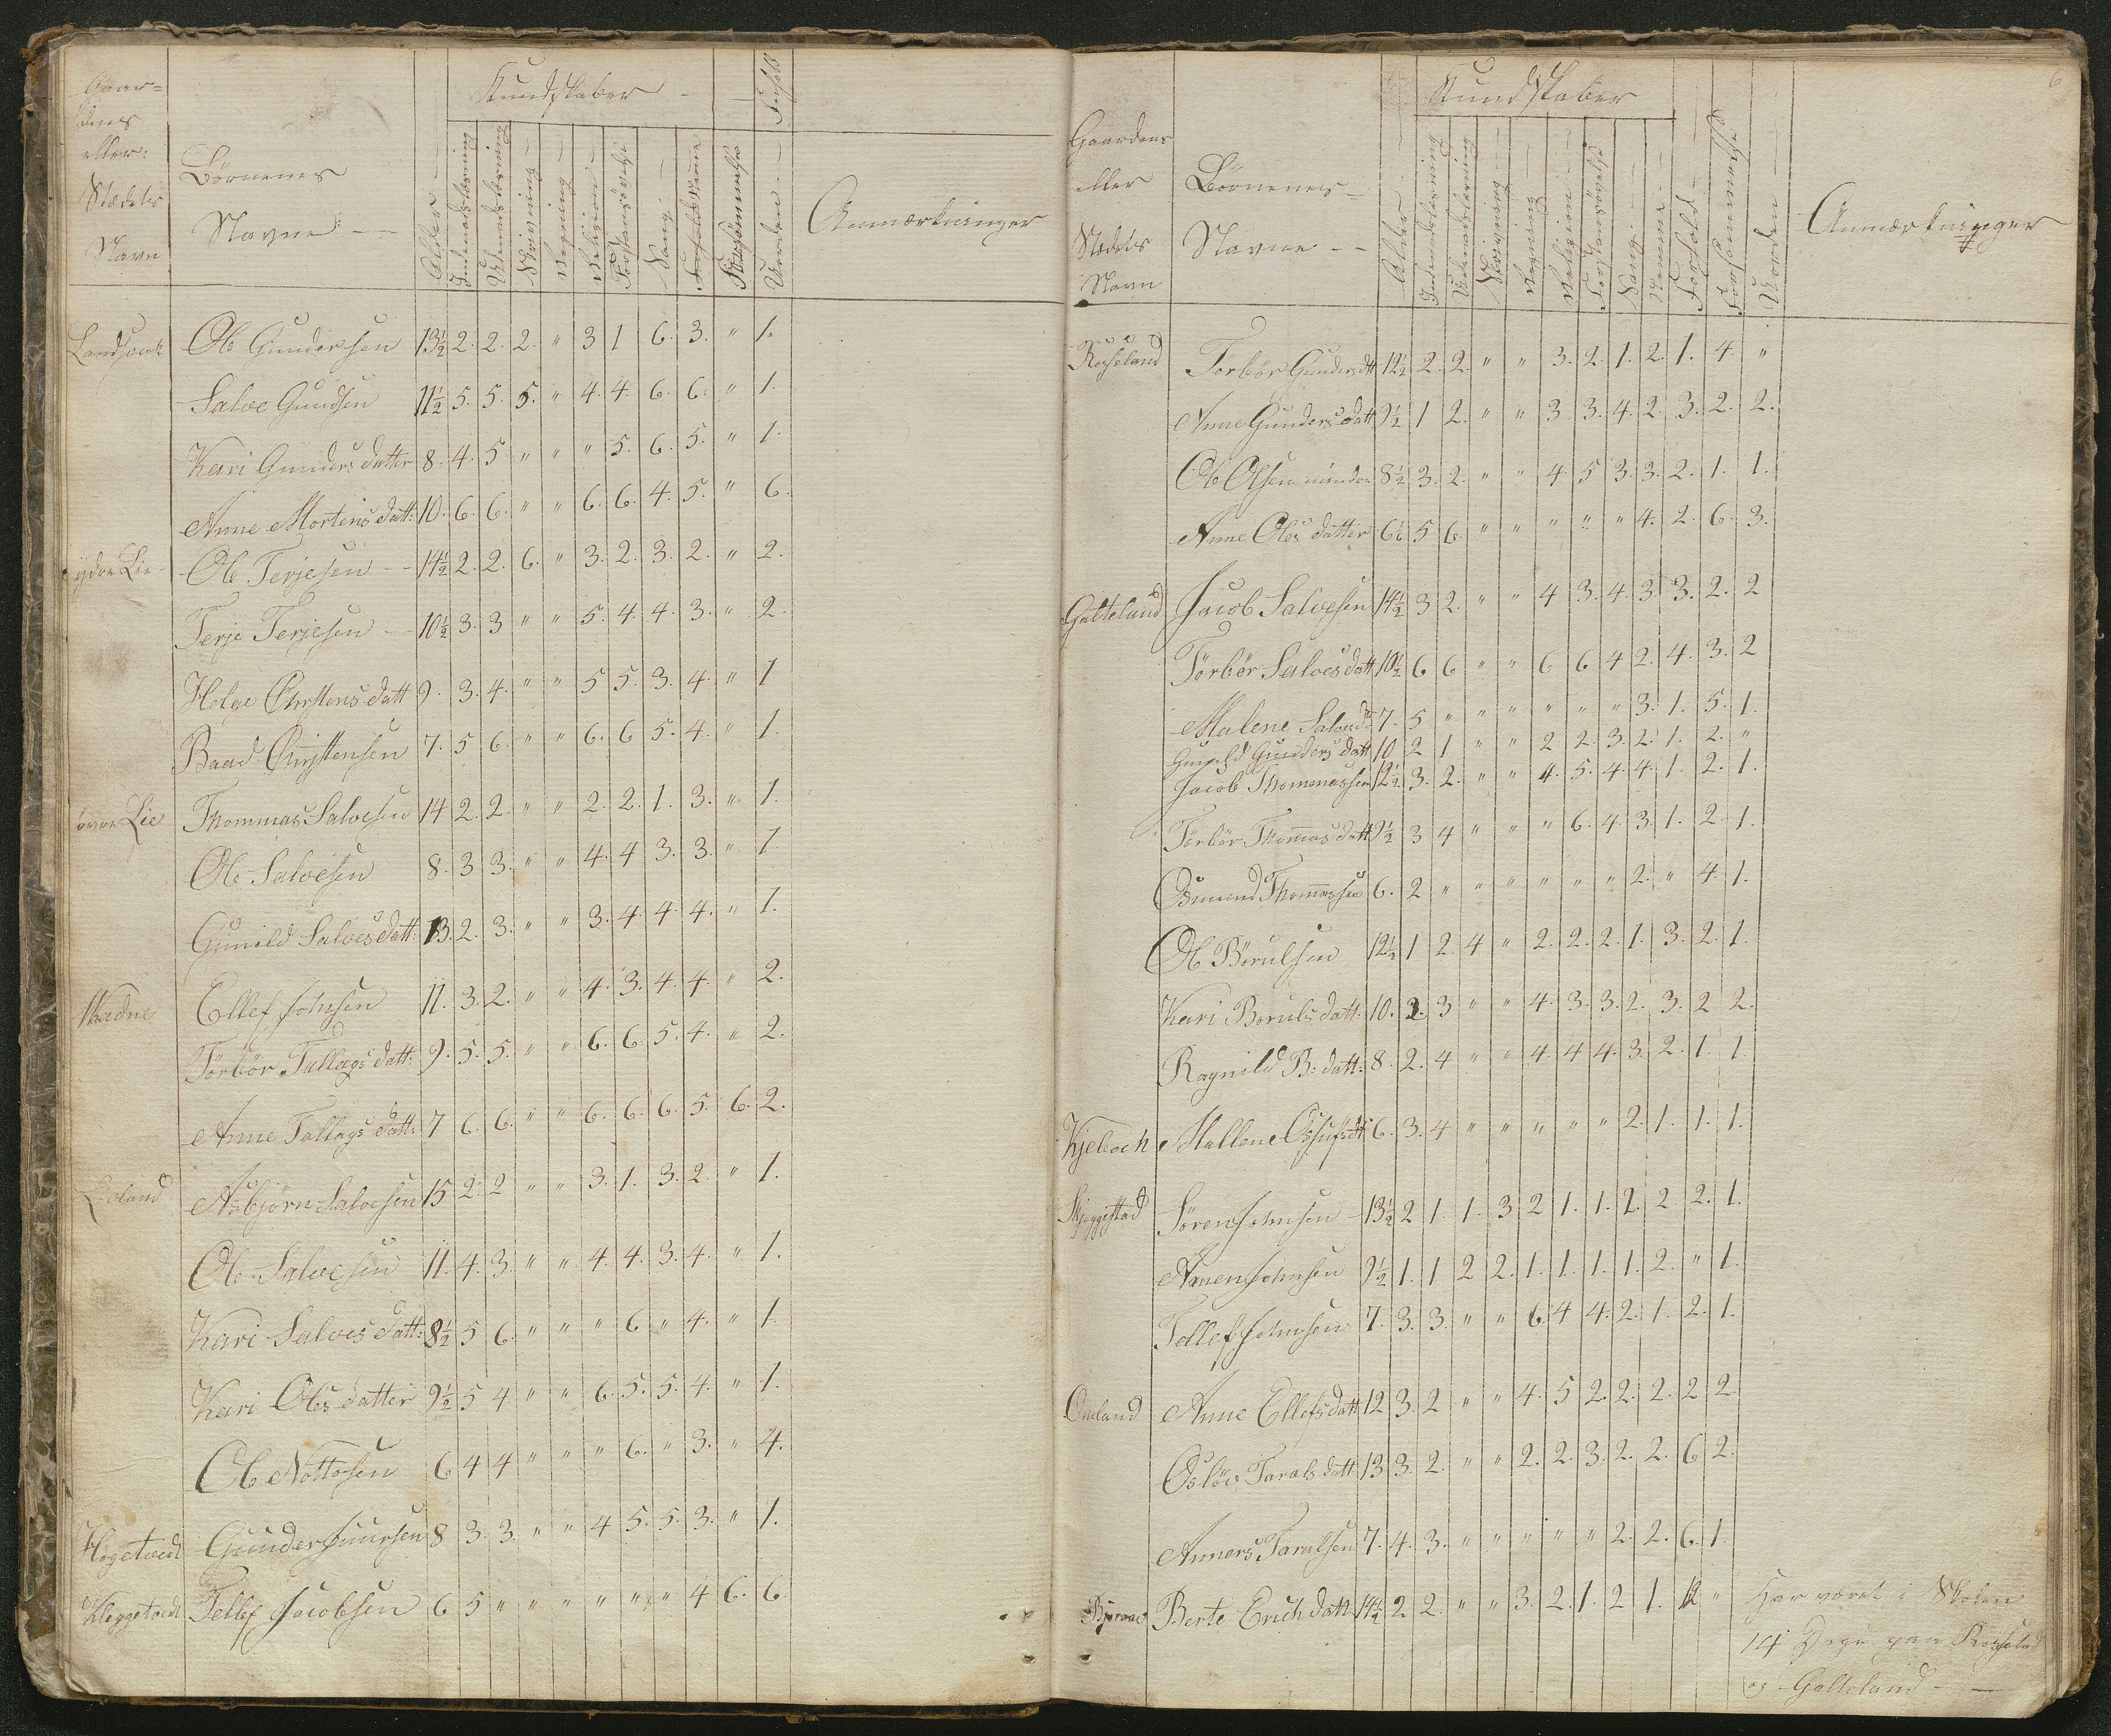 Gaar-
dens
eller
Stædets
Navn
Børnenes
Navne
Kundskaber
Alder
Indenadslæsning
Udenadslæsning
Skrivning
Regning
Religion
Forstansøvelse
Sang
Forsømmelse
Orden
Anmærkninger
Landsverk Ole Gundersen 13½ 2. 2. 2. " 3 1 6. 3. " 1.
Salve Gundsen 11½ 5. 5. 5. " 4. 4. 6. 6. " 1.
Kari Gunders datter 8. 4. 5 " " " 5. 6. 5. " 1.
Anne Mortens datt: 10. 6. 6. " " 6. 6. 4. 5. " 6.
ydre Lie Ole Terjesen 14½ 2. 2. 6. " 3. 2. 3. 2. " 2.
Terje Terjesen 10½ 3. 3 " " 5. 4. 4. 3. " 2.
Helge Christens datt 9. 3. 4. " " 5 5. 3. 4. " 1
Baad Christensen 7. 5 6. " " 6. 6 5. 4. " 1.
øvre Lie Thommas Salvesen 14 2. 2. " " 2. 2. 1. 3. " 1.
Ole Salvesen 8. 3 3. " " 4. 4 3. 3. " 1.
Gunild Salvesdatt: 13. 2. 3. " " 3. 4. 4. 4. " 1.
Ellef Johnsen 11. 3. 2. " " 4. 3. 4. 4. " 2.
Torbör Tallags datt: 9. 5. 5. " " 6. 6. 5. 4. " 2.
Anne Tallags datt: 7 6. 6. " " 6. 6. 6. 5. 6. 2.
Asbjørn Salvesen 15 2. 2 " " 3. 1. 3. 2. " 1.
Ole Salvesen 11. 4. 3. " " 4. 4. 3. 4. " 1.
Kari Salves datt: 8½ 5 6. " " " 6 " 4. " 1.
Kari Oles datter 9½ 5 4 " " 6. 5. 5. 4. " 1.
Ole Nottosen 6 4 4 " " " 6. " 3. " 4.
Høgetvedt Gunder 8 3. 3. " " 4 5. 5. 3. " 1.
Kleggetvedt Tellef Jacobsen 6 5 " " " " " " 4 6. 6.
6
Gaardens
eller
Stædets
Navn
Børnenes
Navne
Kundskaber
Alder
Indenadslæsning
Udenadslæsning
Skrivning
Regning
Religion
Forstansøvelse
Sang
Nemme
Forhold
Forsømmelse
Orden
Anmærkninger
Rosseland Torbør Gundersdtt 12½ 2. 2. " " 3. 2. 1. 2. 1. 4. "
Anne Gundersdatt 9½ 1 2. " " 3. 3. 4. 2. 3. 2. 2.
Ole Olsen mindre 8½ 3. 2. " " 4 5 3. 3. 2. 1. 1.
Anne Oles datter 6½ 5 6. " " " " " 4. 2. 6. 3.
Galteland Jacob Salvesen 14½ 3 2. " " 4 3. 4. 3. 3. 2. 2
Torbør Salvesdatt 10½ 6 6 " " 6 6 4 2. 4. 3. 2
Malene 7. 5 " " " " " " 3. 1. 5. 1.
Gunild Gunders datt 10 2 1 " " 2 2. 3. 2. 1. 2. "
Jacob Thommassen 12½ 3. 2. " " 4. 5. 4. 4. 1. 2. 1.
Torbör Thommas datt 9½ 3 4 " " " 6. 4. 3. 1. 2. 1.
Osmund Thommassen 6. 2 " " " " " " 2. " 4. 1.
Ole Børulsen 12½ 1 2. 4 " 2. 2. 2. 1. 3. 2. 1.
Kari Boruls datt. 10. 2. 3 " " 4. 3. 3. 2. 3. 2 2.
Ragnild B: datt: 8. 2. 4 " " 4. 4 4. 3. 2. 1. 1.
Mallene 6. 3. 4 " " " " " 2. 1. 1. 1.
Skjeggestad Søren Johnsen 13½ 2 1. 1. 3 2 1. 1. 1. 2 2. 1.
Annen Johnsen 9½ 1. 1 2 2. 1. 1. 1. 1. 2. " 1.
Tellef Johnsen 7. 3. 3. " " 6 4 4. 2. 1. 2. 1.
Omland Anne Ellefsdatt 12 3. 2 " " 4. 5 2. 2. 2. 2 2.
Osløv Tarals datt 13 3. 2. " " 2. 2. 3. 2. 2. 6 2.
Anners Taralsen 7. 4. 3. " " " " " 2. 2. 6. 1.
Berte Erich datt 14½ 2 2. " " 3. 2. 1. 2 1. "
Har været i Skolen
14 Dage paa Rosseland
og Galteland